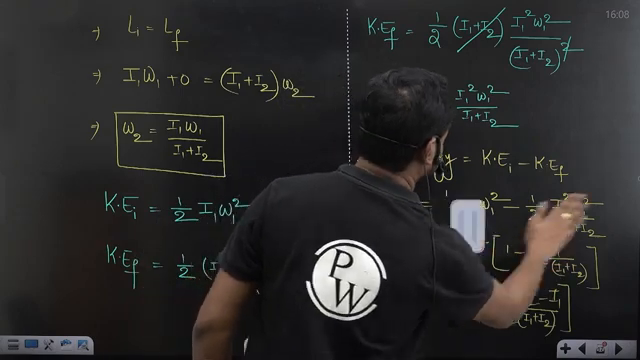 ⇒ L₁ = L_f
⇒ I₁W₁ + 0 = (I₁+I₂)ω₂
⇒ ω₂ = I₁W₁ / I₁+I₂
K·E_i = 1/2 I₁ω₁²
K·E_f = 1/2 (I
16:08
K·E_f = 1/2 (I₁+I₂) I₁²ω₁² / (I₁+I₂)²
I₁²ω₁² / I₁+I₂
y = K·E_i − K·E_f
ω₁² − 1
[ 1 − (I₁+I₂) ]
− I₁ / (I₁+I₂) ]
PW